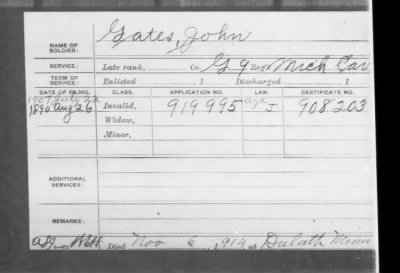 Gates, John
NAME OF SOLDIER:
SERVICE: Late rank, Co. G 9 Reg't Mich Cav
TERM OF SERVICE: Enlisted , 1 Discharged , 1
DATE OF FILING. CLASS. APPLICATION NO. LAW. CERTIFICATE NO.
1907 July 22
1890 Aug 26 Invalid, 919 995 age J 908 203
Widow,
Minor,
ADDITIONAL SERVICES:
REMARKS:
Died Nov 6, 1914 at Duluth Minn